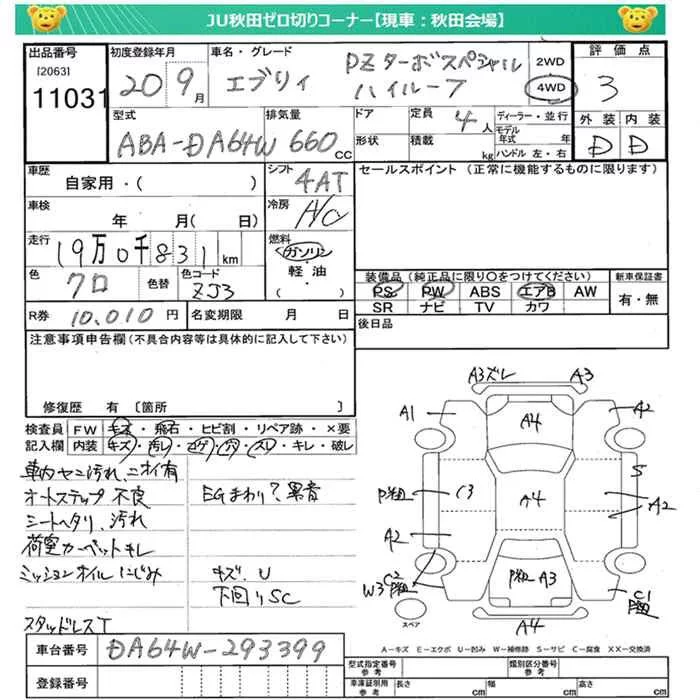 JU秋田ゼロ切りコーナー【現車：秋田会場】
出品番号
[2063]
11031
初度登録年月
20 9月
車名・グレード
エブリィ
PZターボスペシャル
ハイルーフ
2WD
4WD
評価点
3
外装 内装
D D
型式
ABA-DA64W
排気量
660cc
ドア
形状
定員
4人
積載
kg
ディーラー・並行
モデル年式 年
ハンドル 左・右
車歴
自家用・( )
シフト
4AT
車検
年 月( 日)
冷房
A/C
走行
19万0千831km
燃料
ガソリン
・
軽油
・
( )
色
クロ
色替
色コード
ZJ3
R券 10,010円
名変期限 月 日
セールスポイント (正常に機能するものに限ります)
装備品(純正品に限り〇をつけてください)
PS PW ABS エアB AW
SR ナビ TV カワ
新車保証書
有・無
後日品
注意事項申告欄(不具合内容等は具体的に記入して下さい)
修復歴 有 〔箇所 〕
検査員記入欄
FW キズ・飛石・ヒビ割・リペア跡・×要
内装 キズ・汚レ・コゲ・穴・スレ・キレ・破レ
車内ヤニ汚れ、ニオイ有
オートステップ不良
シートヘタリ、汚れ
荷室カーペットキレ
ミッションオイルにじみ
スタッドレスT
EGまわり?異音
キズ、U
下回りSC
A3ズレ
A3
A1
A4
A2
S
P粗
C3
A4
A2
A2
W3
C2
P粗
P粗 A3
C1
P粗
スペア
A4
A－キズ E－エクボ U－凹み W－補修跡 S－サビ C－腐食 XX－交換済
車台番号
DA64W-293399
登録番号
型式指定番号
参考
類別区分番号
参考
車庫証明用
参考
長さ cm
幅 cm
高さ cm